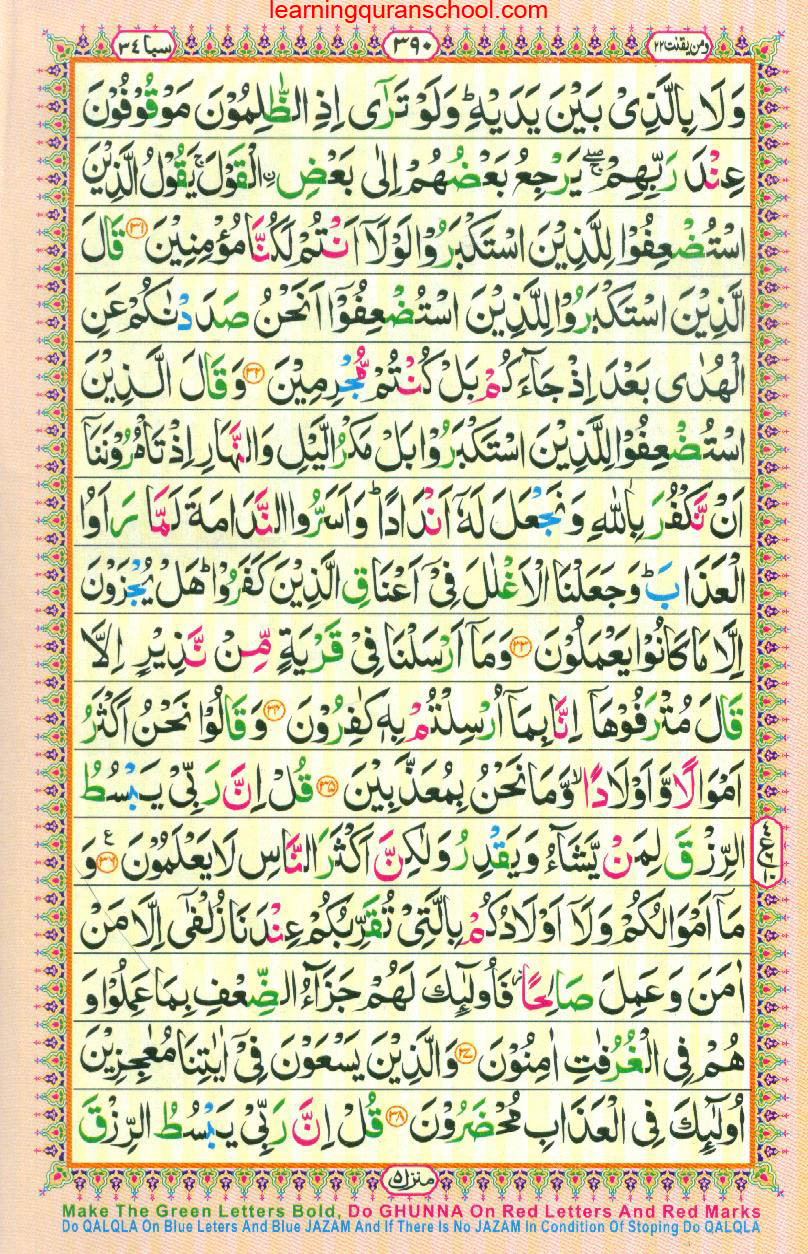 learningquranschool.com
ومن يقنت ٢٢
٣٩٠
سبا ٣٤
وَلَا بِالَّذِىْ بَيْنَ يَدَيْهِ ؕ وَلَوْ تَرٰٓى اِذِ الظّٰلِمُوْنَ مَوْقُوْفُوْنَ
عِنْدَ رَبِّهِمْ ۖۚ يَرْجِعُ بَعْضُهُمْ اِلٰى بَعْضِ ۨالْقَوْلَ ۚ يَقُوْلُ الَّذِيْنَ
اسْتُضْعِفُوْا لِلَّذِيْنَ اسْتَكْبَرُوْا لَوْلَاۤ اَنْتُمْ لَكُنَّا مُؤْمِنِيْنَ ۝٣١ قَالَ
الَّذِيْنَ اسْتَكْبَرُوْا لِلَّذِيْنَ اسْتُضْعِفُوْۤا اَنَحْنُ صَدَدْنٰكُمْ عَنِ
الْهُدٰى بَعْدَ اِذْ جَآءَكُمْ بَلْ كُنْتُمْ مُّجْرِمِيْنَ ۝٣٢ وَقَالَ الَّذِيْنَ
اسْتُضْعِفُوْا لِلَّذِيْنَ اسْتَكْبَرُوْا بَلْ مَكْرُ الَّيْلِ وَالنَّهَارِ اِذْ تَاْمُرُوْنَنَاۤ
اَنْ نَّكْفُرَ بِاللّٰهِ وَنَجْعَلَ لَهٗۤ اَنْدَادًا ؕ وَاَسَرُّوا النَّدَامَةَ لَمَّا رَاَوُا
الْعَذَابَ ؕ وَجَعَلْنَا الْاَغْلٰلَ فِىْۤ اَعْنَاقِ الَّذِيْنَ كَفَرُوْا ؕ هَلْ يُجْزَوْنَ
اِلَّا مَا كَانُوْا يَعْمَلُوْنَ ۝٣٣ وَمَاۤ اَرْسَلْنَا فِىْ قَرْيَةٍ مِّنْ نَّذِيْرٍ اِلَّا
قَالَ مُتْرَفُوْهَاۤ اِنَّا بِمَاۤ اُرْسِلْتُمْ بِهٖ كٰفِرُوْنَ ۝٣٤ وَقَالُوْا نَحْنُ اَكْثَرُ
اَمْوَالًا وَّاَوْلَادًا ۙ وَّمَا نَحْنُ بِمُعَذَّبِيْنَ ۝٣٥ قُلْ اِنَّ رَبِّىْ يَبْسُطُ
الرِّزْقَ لِمَنْ يَّشَآءُ وَيَقْدِرُ وَلٰكِنَّ اَكْثَرَ النَّاسِ لَا يَعْلَمُوْنَ ۝٣٦ ع وَ
مَاۤ اَمْوَالُكُمْ وَلَاۤ اَوْلَادُكُمْ بِالَّتِىْ تُقَرِّبُكُمْ عِنْدَنَا زُلْفٰۤى اِلَّا مَنْ
اٰمَنَ وَعَمِلَ صَالِحًا ؗ فَاُولٰٓئِكَ لَهُمْ جَزَآءُ الضِّعْفِ بِمَا عَمِلُوْا وَ
هُمْ فِى الْغُرُفٰتِ اٰمِنُوْنَ ۝٣٧ وَالَّذِيْنَ يَسْعَوْنَ فِىْۤ اٰيٰتِنَا مُعٰجِزِيْنَ
اُولٰٓئِكَ فِى الْعَذَابِ مُحْضَرُوْنَ ۝٣٨ قُلْ اِنَّ رَبِّىْ يَبْسُطُ الرِّزْقَ
منزل ٥
Make The Green Letters Bold, Do GHUNNA On Red Letters And Red Marks
Do QALQLA On Blue Leters And Blue JAZAM And If There Is No JAZAM In Condition Of Stoping Do QALQLA